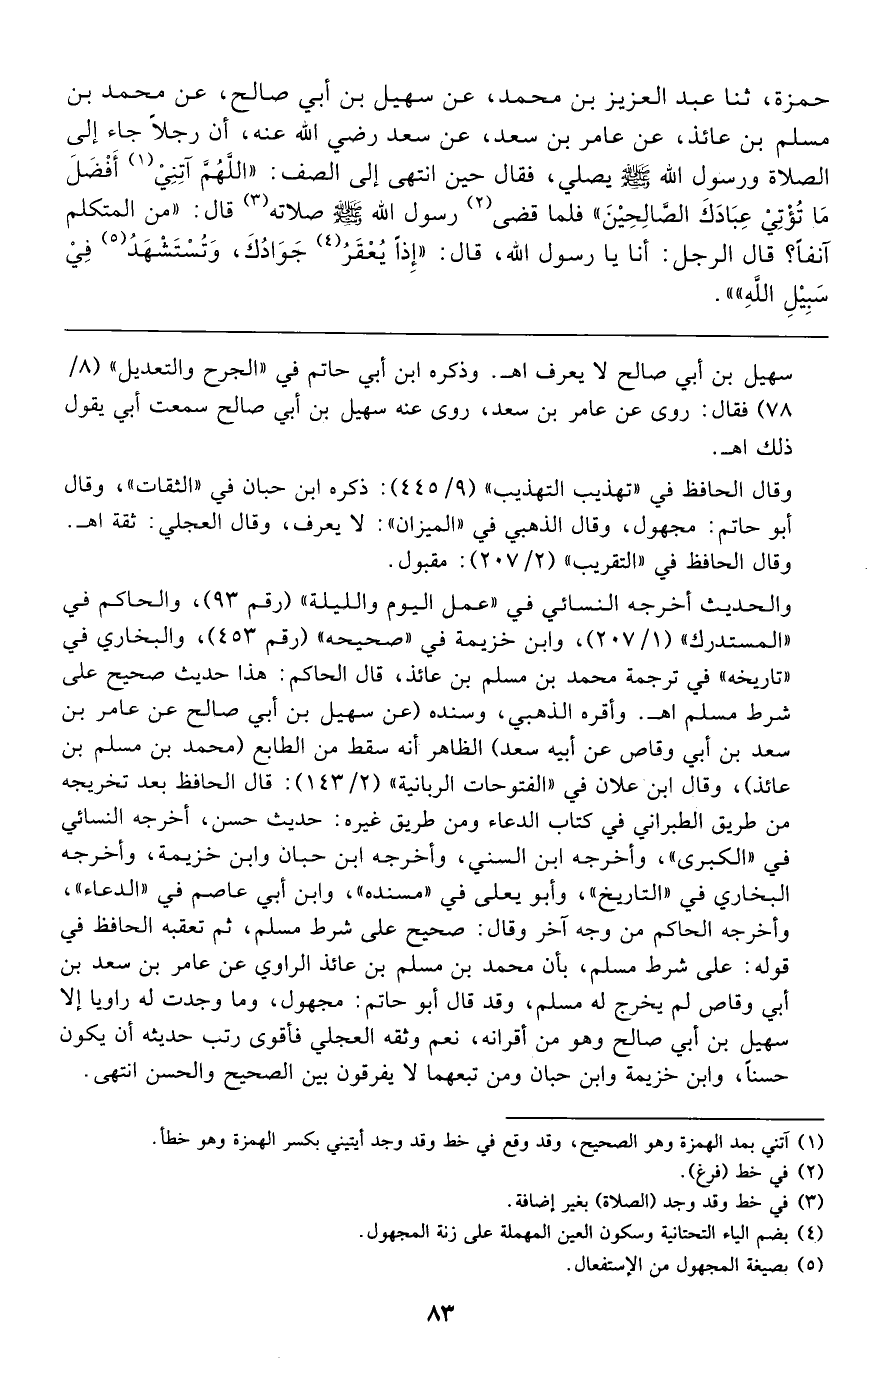 حمزة، ثنا عبد العزيز بن محمد، عن سهيل بن أبي صالح، عن محمد بن
مسلم بن عائذ، عن عامر بن سعد، عن سعد رضي الله عنه، أن رجلاً جاء إلى
الصلاة ورسول الله ﷺ يصلي، فقال حين انتهى إلى الصف: «اللَّهُمَّ آتِنِيْ(١) أَفْضَلَ
مَا تُؤْتِيْ عِبَادَكَ الصَّالِحِيْنَ» فلما قضى(٢) رسول الله ﷺ صلاته(٣) قال: «من المتكلم
آنفاً؟ قال الرجل: أنا يا رسول الله، قال: «إِذاً يُعْقَرُ(٤) جَوَادُكَ، وَتُسْتَشْهَدُ(٥) فِيْ
سَبِيْلِ اللَّهِ»».
سهيل بن أبي صالح لا يعرف اهـ. وذكره ابن أبي حاتم في «الجرح والتعديل» (٨/
٧٨) فقال: روى عن عامر بن سعد، روى عنه سهيل بن أبي صالح سمعت أبي يقول
ذلك اهـ.
وقال الحافظ في «تهذيب التهذيب» (٩/ ٤٤٥): ذكره ابن حبان في «الثقات»، وقال
أبو حاتم: مجهول، وقال الذهبي في «الميزان»: لا يعرف، وقال العجلي: ثقة اهـ.
وقال الحافظ في «التقريب» (٢/ ٢٠٧): مقبول.
والحديث أخرجه النسائي في «عمل اليوم والليلة» (رقم ٩٣)، والحاكم في
«المستدرك» (١/ ٢٠٧)، وابن خزيمة في «صحيحه» (رقم ٤٥٣)، والبخاري في
«تاريخه» في ترجمة محمد بن مسلم بن عائذ، قال الحاكم: هذا حديث صحيح على
شرط مسلم اهـ. وأقره الذهبي، وسنده (عن سهيل بن أبي صالح عن عامر بن
سعد بن أبي وقاص عن أبيه سعد) الظاهر أنه سقط من الطابع (محمد بن مسلم بن
عائذ)، وقال ابن علان في «الفتوحات الربانية» (٢/ ١٤٣): قال الحافظ بعد تخريجه
من طريق الطبراني في كتاب الدعاء ومن طريق غيره: حديث حسن، أخرجه النسائي
في «الكبرى»، وأخرجه ابن السني، وأخرجه ابن حبان وابن خزيمة، وأخرجه
البخاري في «التاريخ»، وأبو يعلى في «مسنده»، وابن أبي عاصم في «الدعاء»،
وأخرجه الحاكم من وجه آخر وقال: صحيح على شرط مسلم، ثم تعقبه الحافظ في
قوله: على شرط مسلم، بأن محمد بن مسلم بن عائذ الراوي عن عامر بن سعد بن
أبي وقاص لم يخرج له مسلم، وقد قال أبو حاتم: مجهول، وما وجدت له راويا إلا
سهيل بن أبي صالح وهو من أقرانه، نعم وثقه العجلي فأقوى رتب حديثه أن يكون
حسناً، وابن خزيمة وابن حبان ومن تبعهما لا يفرقون بين الصحيح والحسن انتهى.
(١) آتني بمد الهمزة وهو الصحيح، وقد وقع في خط وقد وجد أيتيني بكسر الهمزة وهو خطأ.
(٢) في خط (فرغ).
(٣) في خط وقد وجد (الصلاة) بغير إضافة.
(٤) بضم الياء التحتانية وسكون العين المهملة على زنة المجهول.
(٥) بصيغة المجهول من الإستفعال.
٨٣